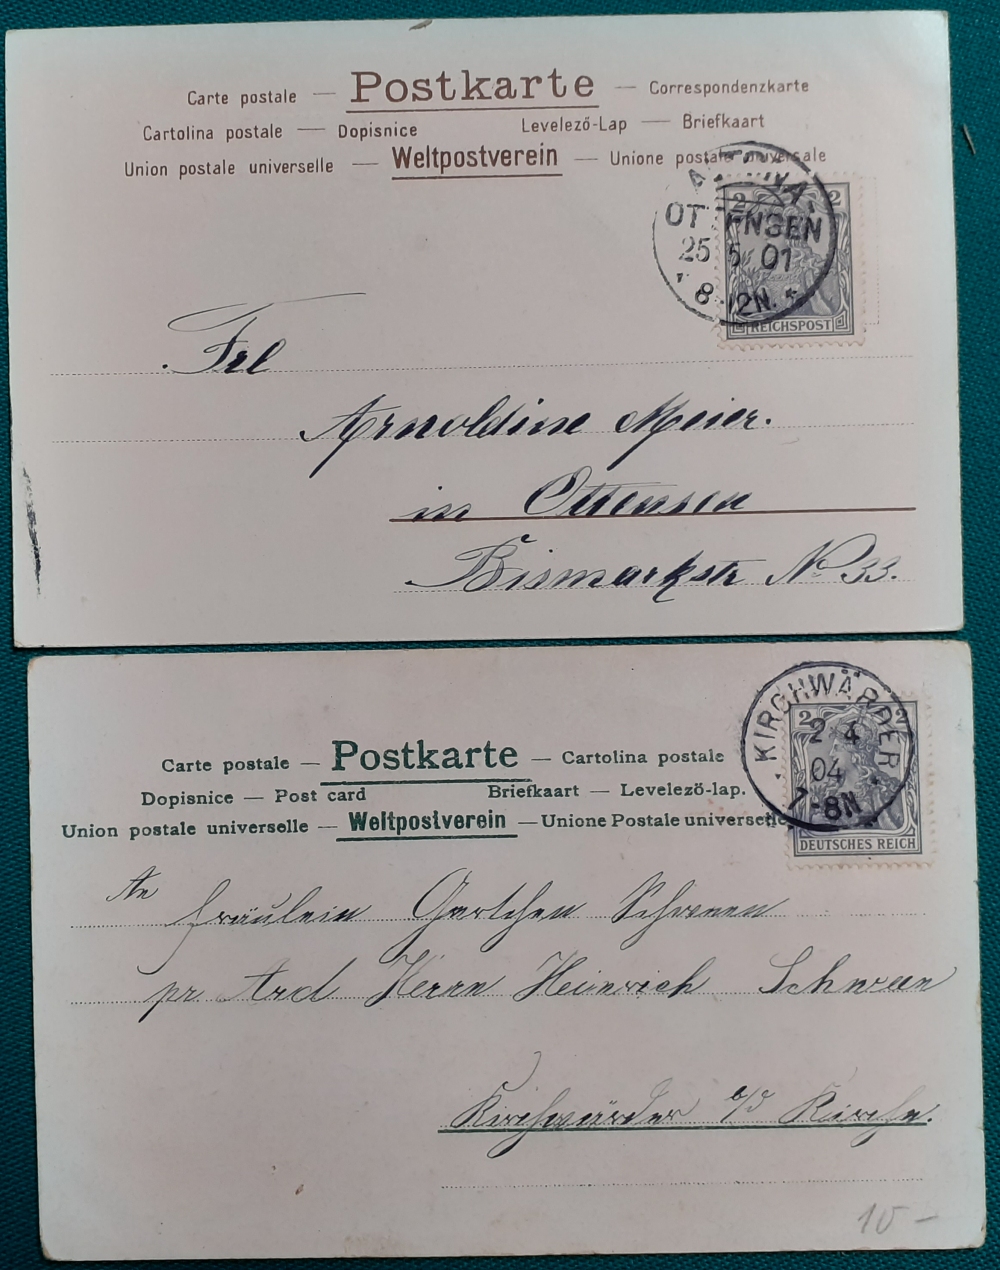 Postkarte
Carte postale — Correspondenzkarte
Cartolina postale — Dopisnice Levelező-Lap — Briefkaart
Union postale universelle — Weltpostverein — Unione postale universale
2 2
OTTENSEN
25 5 01
8-12N.
REICHSPOST
Frl
Arnoldine Meier.
in Ottensen
Bismarkstr No 33.
KIRCHWÄRDER
2 4
04
7-8N
2 2
DEUTSCHES REICH
Carte postale — Postkarte — Cartolina postale
Dopisnice — Post card Briefkaart — Levelező-lap.
Union postale universelle — Weltpostverein — Unione Postale universelle
An Fräulein Gretchen Schween
pr Ard Herrn Heinrich Schween
Kirchwärder b/d Kirche.
10 –